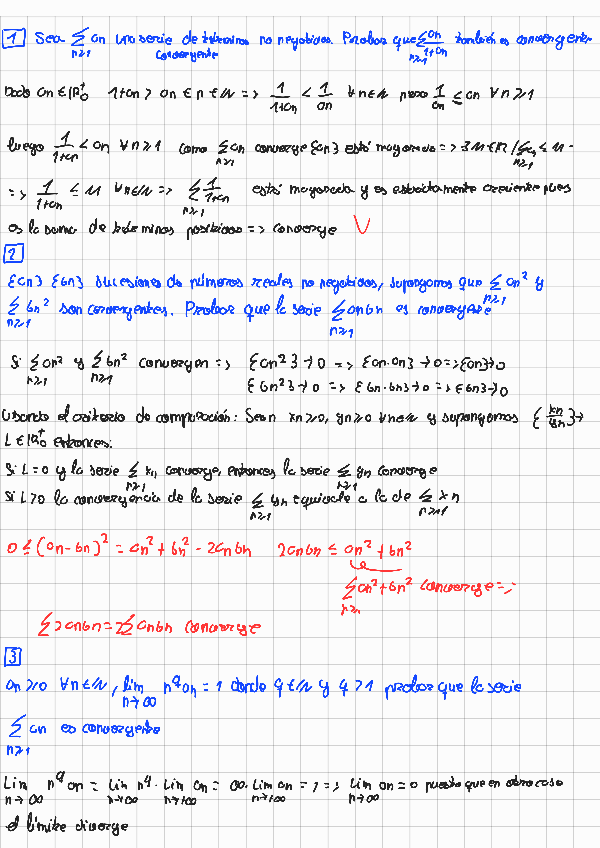 1 Sea ∑n≥1 an una serie de términos no negativos. Probar que ∑n≥1 an/1+an también es convergente
convergente
Dado an ∈ ℝ₀⁺ 1+an > an ∀ n ∈ ℕ => 1/1+an < 1/an ∀n∈ℕ pero 1/an ≤ an ∀n≥1
luego 1/1+an < an ∀n≥1 como ∑n≥1 an converge {an} está mayorada => ∃M∈ℝ / ∑n≥1 an ≤ M
=> 1/1+an ≤ M ∀n∈ℕ => ∑n≥1 1/1+an está mayorada y es estrictamente creciente pues
es la suma de términos positivos => converge
2
{an} {bn} sucesiones de números reales no negativos, supongamos que ∑n≥1 an² y
∑n≥1 bn² son convergentes. Probar que la serie ∑n≥1 anbn es convergente
Si ∑n≥1 an² y ∑n≥1 bn² convergen => {an²}→0 => {an·an}→0 => {an}→0
{bn²}→0 => {bn·bn}→0 => {bn}→0
Usando el criterio de comparación: Sean xn≥0, yn≥0 ∀n∈ℕ y supongamos {xn/yn}→
L∈ℝ₀⁺ entonces:
Si L=0 y la serie ∑n≥1 xn converge, entonces la serie ∑n≥1 yn converge
Si L>0 la convergencia de la serie ∑n≥1 yn equivale a la de ∑n≥1 xn
0 ≤ (an-bn)² = an²+bn²-2anbn 2anbn ≤ an²+bn²
∑n≥1 an²+bn² converge =>
∑2anbn = 2∑anbn converge
3
an≥0 ∀n∈ℕ, lim n→∞ n^q an = 1 donde q∈ℕ y q>1 probar que la serie
∑n≥1 an es convergente
Lim n→∞ n^q an = Lim n→∞ n^q · Lim n→∞ an = ∞· Lim n→∞ an = 1 => Lim n→∞ an = 0 puesto que en otro caso
el límite diverge